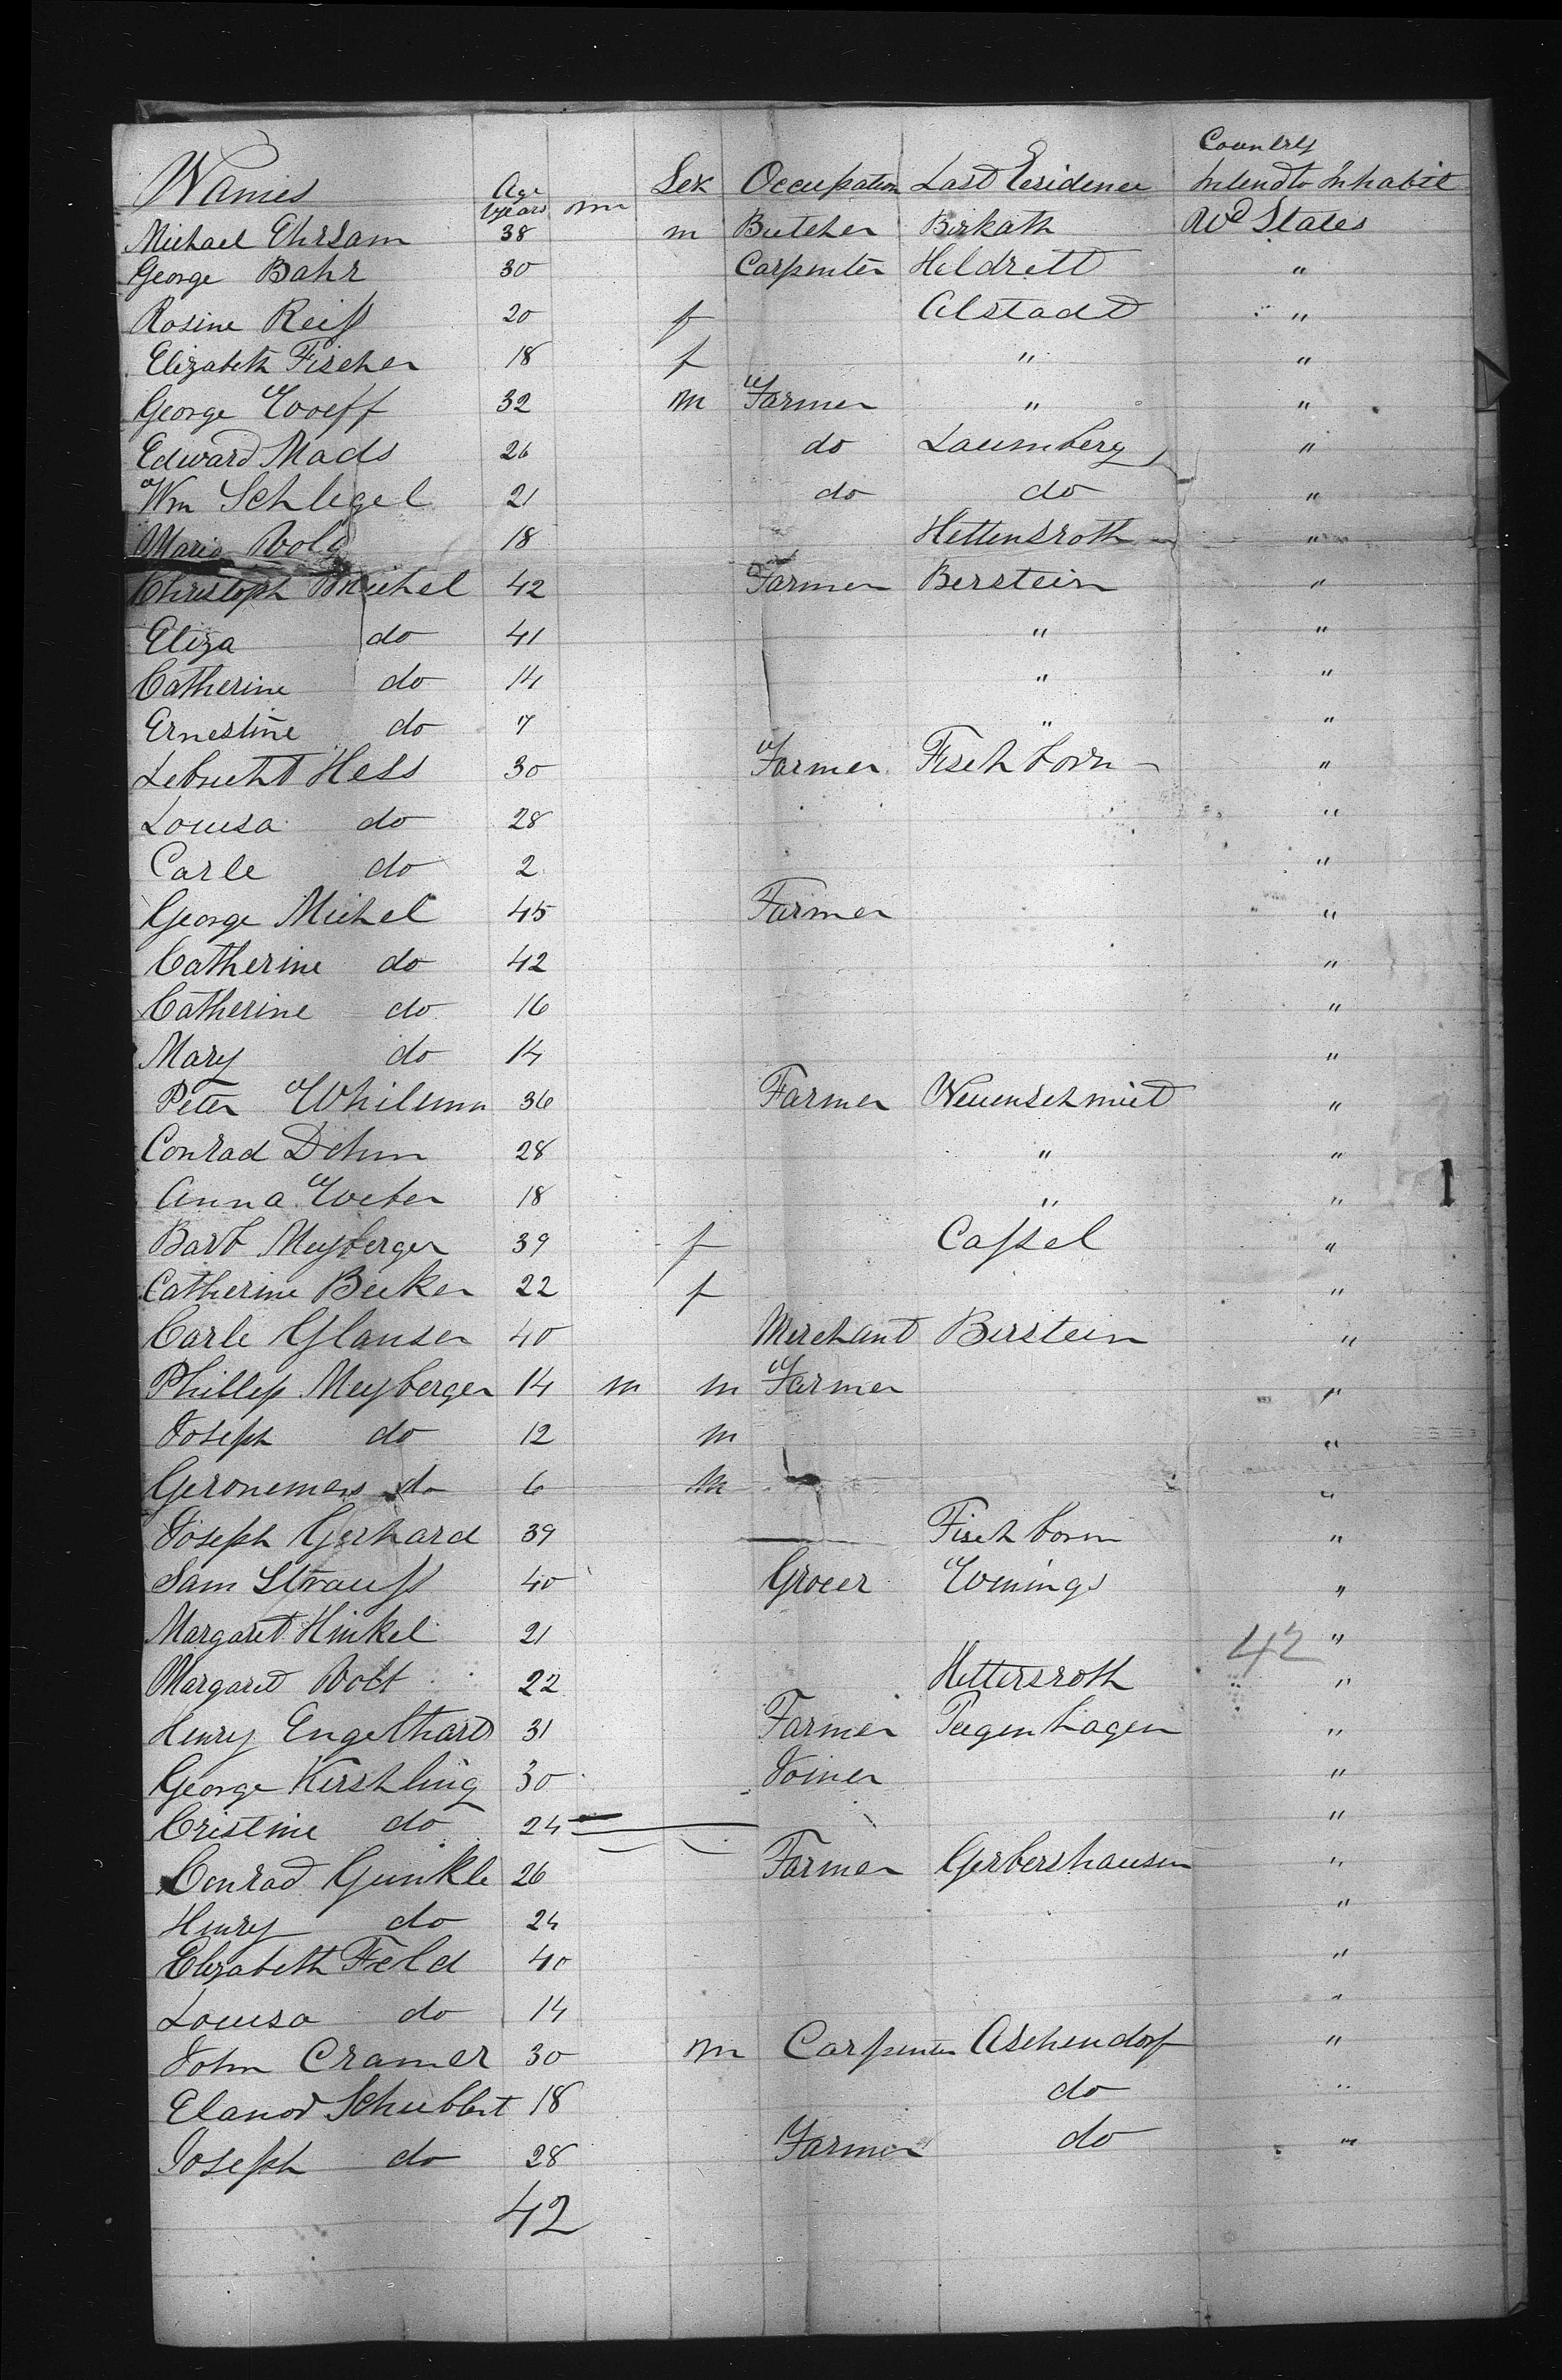 Country
Names Age years mn Sex Occupation Last Residence Intend to Inhabit
Michael Ehrsam 38 m Butcher Birkath Ud States
George Bahr 30 Carpenter Heldrett "
Rosine Reiß 20 f Alstadt "
Elizabeth Fischer 18 f " "
George Woeff 32 m Farmer " "
Edward Mads 26 do Laumberg "
Wm Schlegel 21 do do "
Maria 18 Hettensroth "
Christoph Michel 42 Farmer Berstein "
Eliza do 41 " "
Catherine do 14 " "
Ernestine do 7 " "
Lebrecht Hess 30 Farmer Fischborn "
Louisa do 28 "
Carle do 2 "
George Michel 45 Farmer "
Catherine do 42 "
Catherine do 16 "
Mary do 14 "
Peter 36 Farmer Neuenschmidt "
Conrad Dehm 28 " "
Anna Weber 18 " "
Barb Meyberger 39 f Caßel "
Catherine Becker 22 f "
Carle Glauser 40 Merchant Berstein "
Phillip Meyberger 14 m m Farmer "
Joseph do 12 m "
Geronemas do 6 m "
Joseph Gerhard 39 Fischborn "
Sam Strauß 40 Grocer Wenings "
Margaret Hinkel 21 42 "
Margaret 22 Hettersroth "
Henry Engelthard 31 Farmer "
George Kirshling 30 Joiner "
Cristine do 24 "
Conrad Gunkle 26 Farmer Gerbershausen "
Henry do 24 "
Elizabeth Feld 40 "
Louisa do 14 "
John Cramer 30 m Carpenter Aschendorf "
Elanor Schubbert 18 do "
Joseph do 28 Farmer do "
42
1